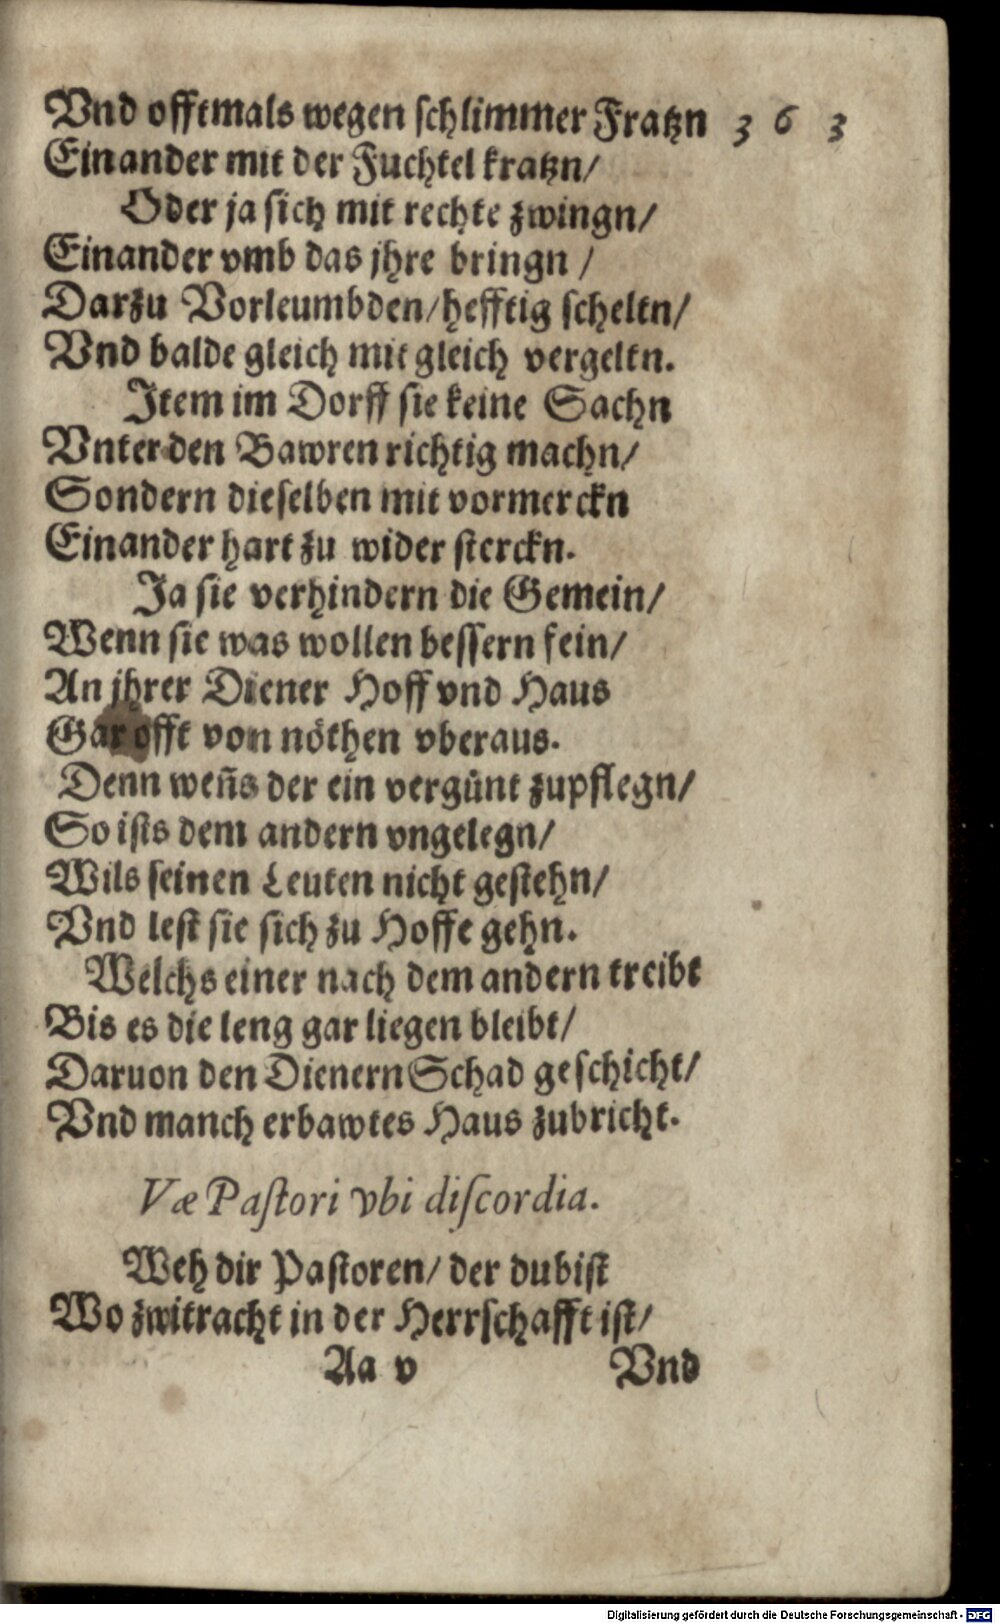 Vnd offtmals wegen schlimmer Fratzn 363
Einander mit der Fuchtel kratzn/
Oder ja sich mit rechte zwingn/
Einander vmb das jhre bringn /
Darzu Vorleumbden/ hefftig scheltn/
Vnd balde gleich mit gleich vergeltn.
Item im Dorff sie keine Sachn
Vnter den Bawren richtig machn/
Sondern dieselben mit vormerckn
Einander hart zu wider sterckn.
Ja sie verhindern die Gemein/
Wenn sie was wollen bessern fein/
An jhrer Diener Hoff vnd Haus
Gar offt von nöthen vberaus.
Denn weñs der ein vergünt zupflegn/
So ists dem andern vngelegn/
Wils seinen Leuten nicht gestehn/
Vnd lest sie sich zu Hoffe gehn.
Welchs einer nach dem andern treibt
Bis es die leng gar liegen bleibt/
Daruon den Dienern Schad geschicht/
Vnd manch erbawtes Haus zubricht.
Væ Paſtori vbi diſcordia.
Weh dir Pastoren/ der du bist
Wo zwitracht in der Herrschafft ist/
Aa v Vnd
Digitalisierung gefördert durch die Deutsche Forschungsgemeinschaft - DFG